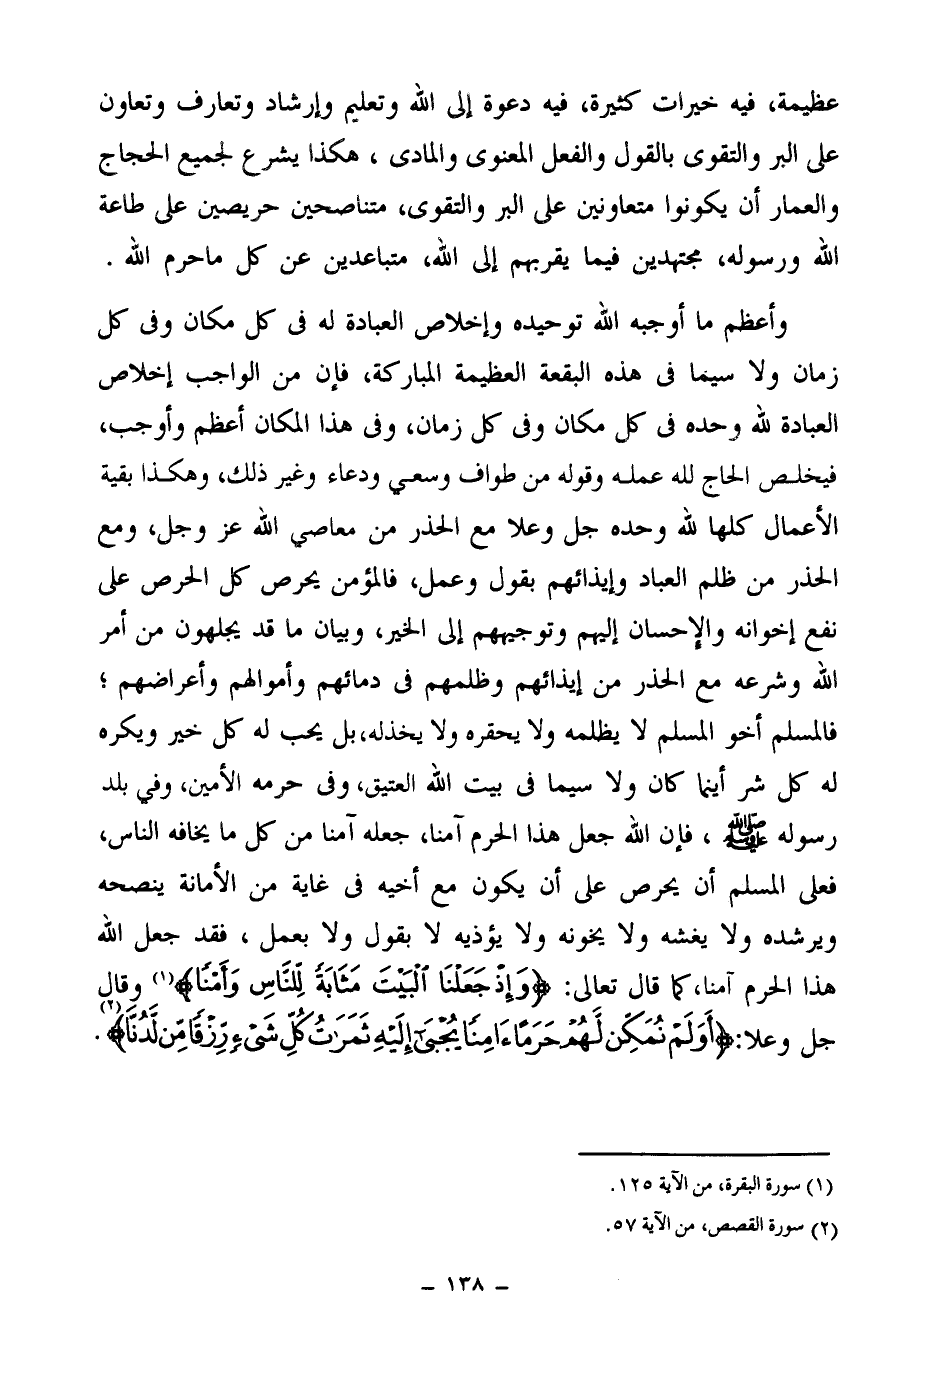 عظيمة، فيه خيرات كثيرة، فيه دعوة إلى الله وتعليم وإرشاد وتعارف وتعاون
على البر والتقوى بالقول والفعل المعنوى والمادى ، هكذا يشرع لجميع الحجاج
والعمار أن يكونوا متعاونين على البر والتقوى، متناصحين حريصين على طاعة
الله ورسوله، مجتهدين فيما يقربهم إلى الله، متباعدين عن كل ماحرم الله .
وأعظم ما أوجبه الله توحيده وإخلاص العبادة له فى كل مكان وفى كل
زمان ولا سيما فى هذه البقعة العظيمة المباركة، فإن من الواجب إخلاص
العبادة لله وحده فى كل مكان وفى كل زمان، وفى هذا المكان أعظم وأوجب،
فيخلص الحاج لله عمله وقوله من طواف وسعي ودعاء وغير ذلك، وهكذا بقية
الأعمال كلها لله وحده جل وعلا مع الحذر من معاصي الله عز وجل، ومع
الحذر من ظلم العباد وإيذائهم بقول وعمل، فالمؤمن يحرص كل الحرص على
نفع إخوانه والإحسان إليهم وتوجيههم إلى الخير، وبيان ما قد يجلهون من أمر
الله وشرعه مع الحذر من إيذائهم وظلمهم فى دمائهم وأموالهم وأعراضهم ؛
فالمسلم أخو المسلم لا يظلمه ولا يحقره ولا يخذله، بل يحب له كل خير ويكره
له كل شر أينما كان ولا سيما فى بيت الله العتيق، وفى حرمه الأمين، وفي بلد
رسوله ﷺ ، فإن الله جعل هذا الحرم آمنا، جعله آمنا من كل ما يخافه الناس،
فعلى المسلم أن يحرص على أن يكون مع أخيه فى غاية من الأمانة ينصحه
ويرشده ولا يغشه ولا يخونه ولا يؤذيه لا بقول ولا بعمل ، فقد جعل الله
هذا الحرم آمنا، كما قال تعالى: ﴿وَإِذْ جَعَلْنَا ٱلْبَيْتَ مَثَابَةً لِّلنَّاسِ وَأَمْنًا﴾(١) وقال
جل وعلا: ﴿أَوَلَمْ نُمَكِّن لَّهُمْ حَرَمًا ءَامِنًا يُجْبَىٰٓ إِلَيْهِ ثَمَرَٰتُ كُلِّ شَىْءٍ رِّزْقًا مِّن لَّدُنَّا﴾(٢).
(١) سورة البقرة، من الآية ١٢٥.
(٢) سورة القصص، من الآية ٥٧.
– ١٣٨ –